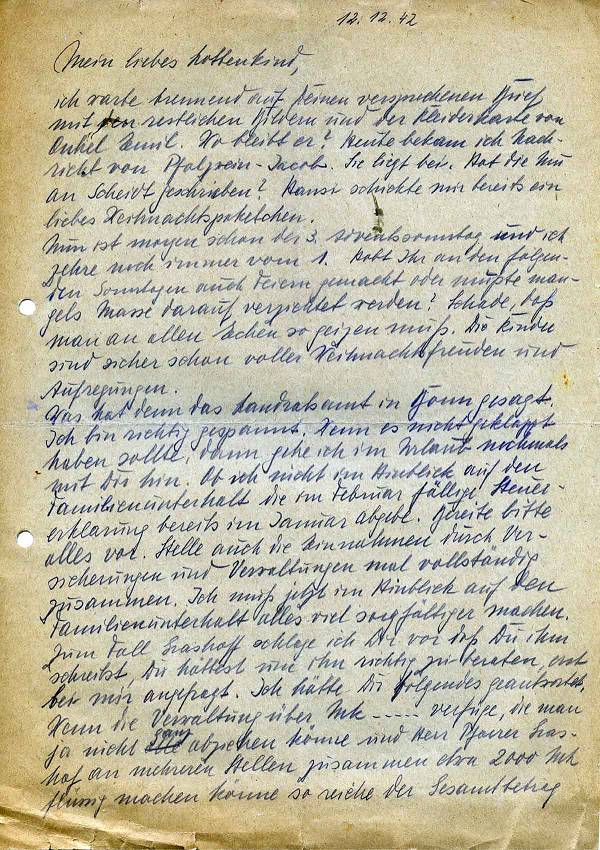 12.12.42
Mein liebes Lottenkind,
ich warte brennend auf Deinen versprochenen Brief
mit den restlichen Bildern und der Kleiderkarte von
Onkel Emil. Wo bleibt er? Heute bekam ich Nach-
richt von Pfalzwein-Jacob. Sie liegt bei. Hat die Mu
an Scheidt geschrieben? Hansi schickte mir bereits ein
liebes Weihnachtspaketchen.
Nun ist morgen schon der 3. Adventssonntag und ich
zehre noch immer vom 1. Habt Ihr an den folgen-
den Sonntagen auch Feiern gemacht oder mußte man-
gels Masse darauf verzichtet werden? Schade, daß
man an allen Ecken so geizen muß. Die Kinder
sind sicher schon voller Weihnachtsfreuden und
Aufregungen.
Was hat denn das Landratsamt in Bonn gesagt.
Ich bin richtig gespannt. Wenn es nicht geklappt
haben sollte, dann gehe ich im Urlaub nochmals
mit Dir hin. Ob ich nicht im Hinblick auf den
Familienunterhalt die im Februar fällige Steuer-
erklärung bereits im Januar abgebe. Bereite bitte
alles vor. Stelle auch die Einnahmen durch Ver-
sicherungen und Verwaltungen mal vollständig
zusammen. Ich muß jetzt im Hinblick auf den
Familienunterhalt alles viel sorgfältiger machen.
Zum Fall Grashoff schlage ich Dir vor daß Du ihm
schreibst, Du hättest um ihn richtig zu beraten, erst
bei mir angefragt. Ich hätte Dir folgendes geantwortet,
Wenn die Verwaltung über Mk ----- verfüge, die man
ja nicht ganz abziehen könne und Herr Pfarrer Gras-
hof an mehreren Stellen zusammen etwa 2000 Mk
flüssig machen könne so reiche der Gesamtbetrag